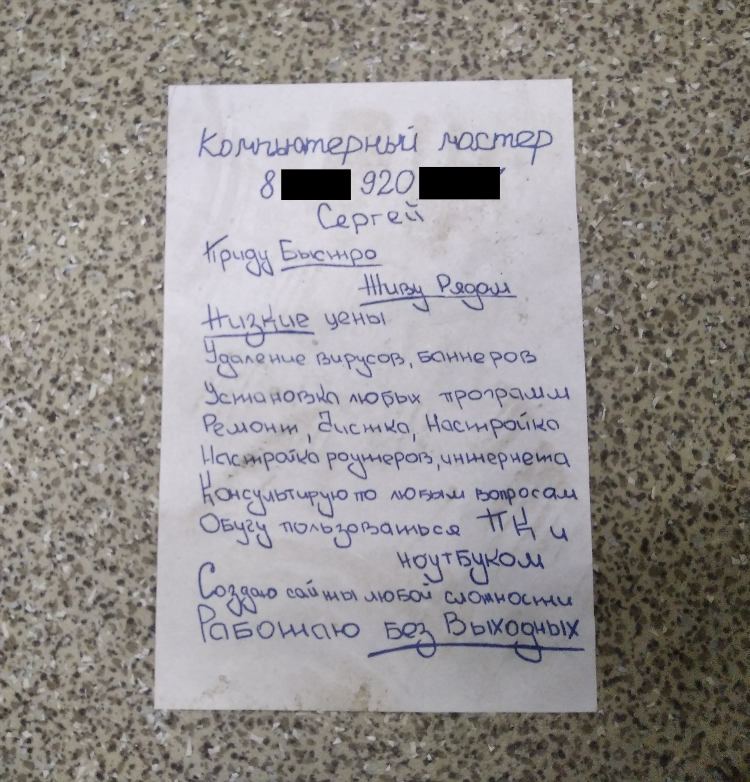 Компьютерный мастер
8 920
Сергей
Приду Быстро
Живу Рядом
Низкие цены
Удаление вирусов, баннеров
Установка любых программ
Ремонт, Чистка, Настройка
Настройка роутеров, интернета
Консультирую по любым вопросам
Обучу пользоваться ПК и
ноутбуком
Создаю сайты любой сложности
Работаю Без Выходных